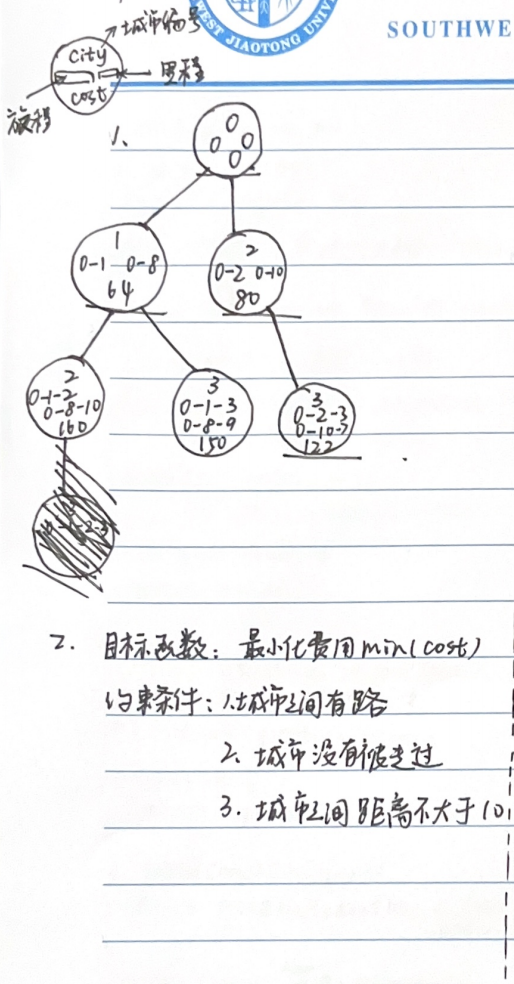 WEST JIAOTONG UNIV
SOUTHWE
城市编号
City
里程
cost
旅程
1、
0
0 0
0
1
0-1 0-8
64
2
0-2 0-10
80
2
0-1-2
0-8-10
160
3
0-1-3
0-8-9
150
3
0-2-3
0-10-7
122
2. 目标函数: 最小化费用min(cost)
约束条件: 1.城市之间有路
2、城市没有被走过
3. 城市之间距离不大于10